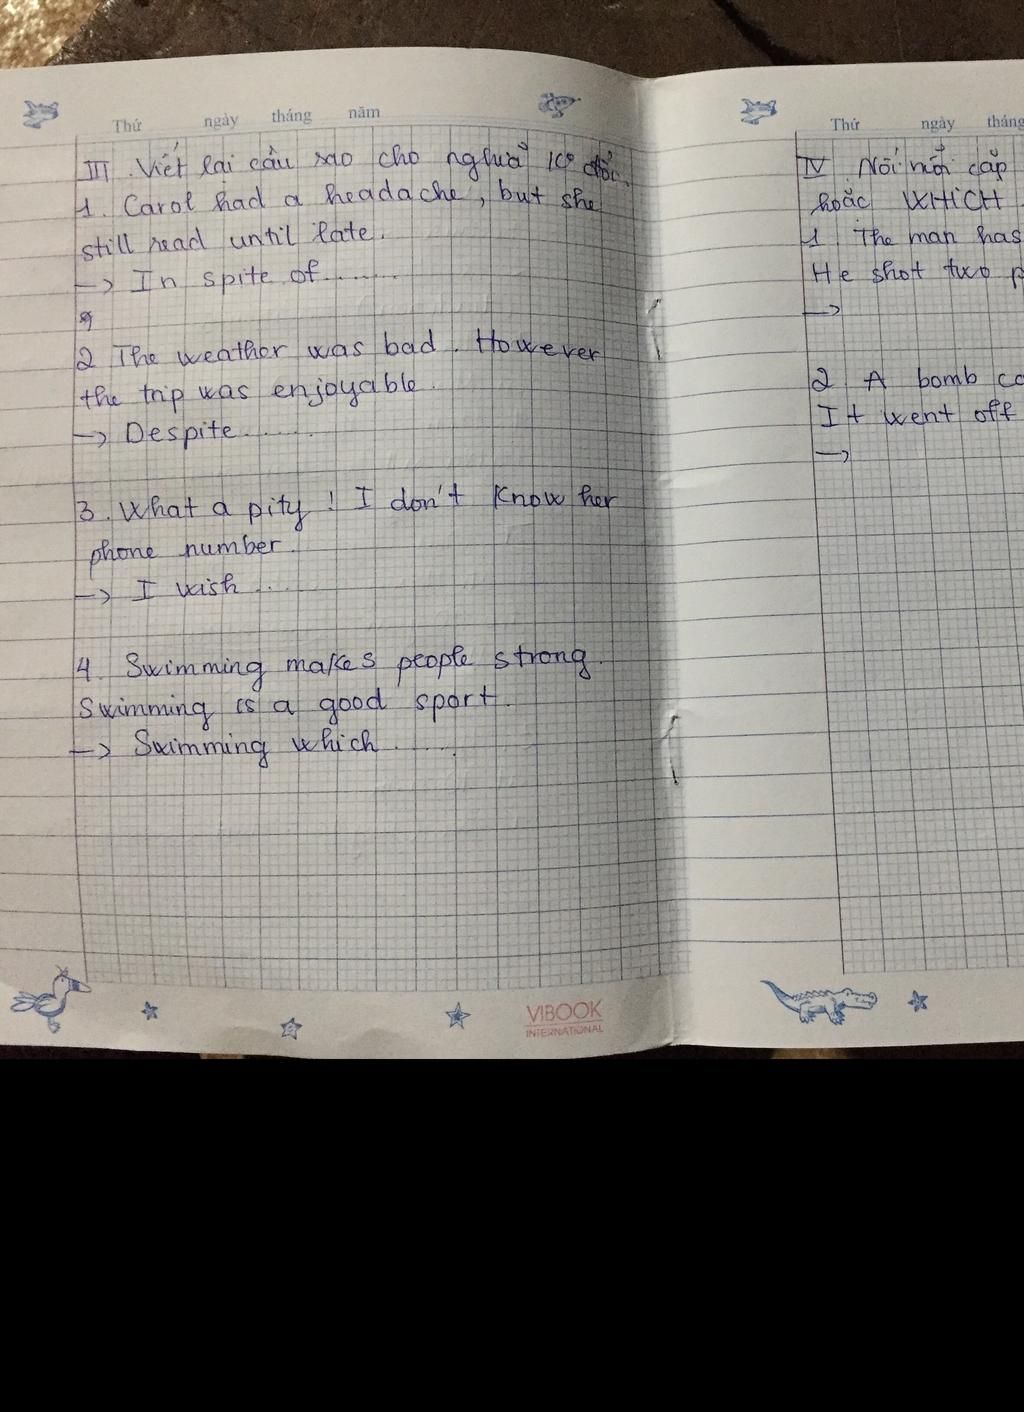 Thứ ngày tháng năm
III. Viết lại câu sao cho nghĩa ko đổi.
1. Carol had a headache, but she
still read until late.
-> In spite of........
2 The weather was bad. However
the trip was enjoyable.
-> Despite.........
3. What a pity! I don't know her
phone number.
-> I wish ....
4. Swimming makes people strong.
Swimming is a good sport.
-> Swimming which .......
VIBOOK
INTERNATIONAL
Thứ ngày tháng
IV. Nối mỗi cặp
hoặc WHICH
1 The man has
He shot two
->
2 A bomb
It went off
->